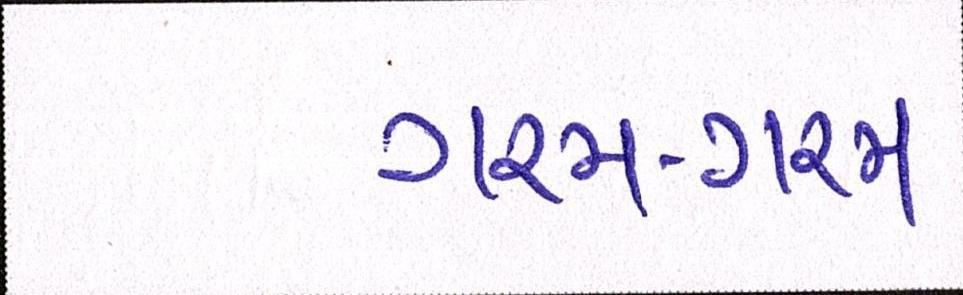 ગરમ-ગરમ